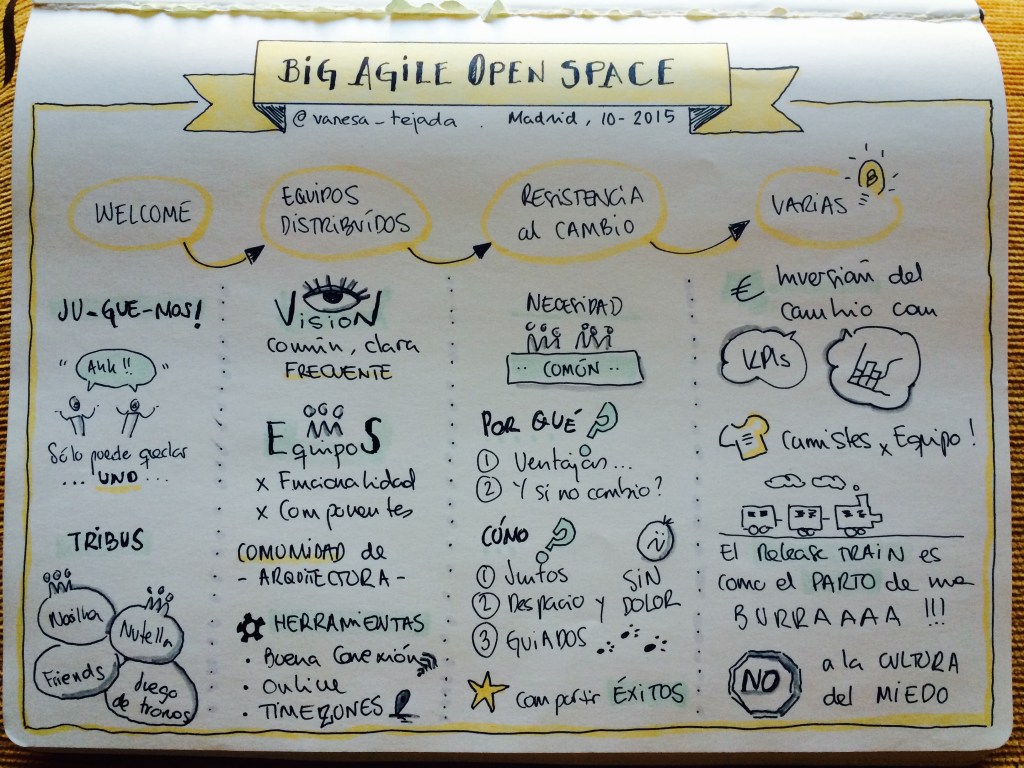 BIG AGILE OPEN SPACE
@vanesa_tejada . Madrid, 10-2015
WELCOME
JU-GUE-MOS!
" Ahh!! "
Sólo puede quedar
... UNO ...
TRIBUS
Nocilla
Nutella
Friends
Juego
de tronos
EQUIPOS
DISTRIBUÍDOS
VISIÓN
común, clara
FRECUENTE
EQUIPOS
x Funcionalidad
x Componentes
COMUNIDAD de
- ARQUITECTURA -
HERRAMIENTAS
· Buena Conexión
· Online
· TIMEZONES
RESISTENCIA
al CAMBIO
NECESIDAD
·· COMÚN ··
POR QUÉ ?
1 Ventajas...
2 Y si no cambio?
CÓMO ?
1 Juntos
2 Despacio y
SIN
DOLOR
3 GUIADOS
Compartir ÉXITOS
VARIAS
B
€ Inversión del
cambio con
KPIs
Camisetas x Equipo!
El Release TRAIN es
como el PARTO de una
BURRAAAA !!!
NO
a la CULTURA
del MIEDO